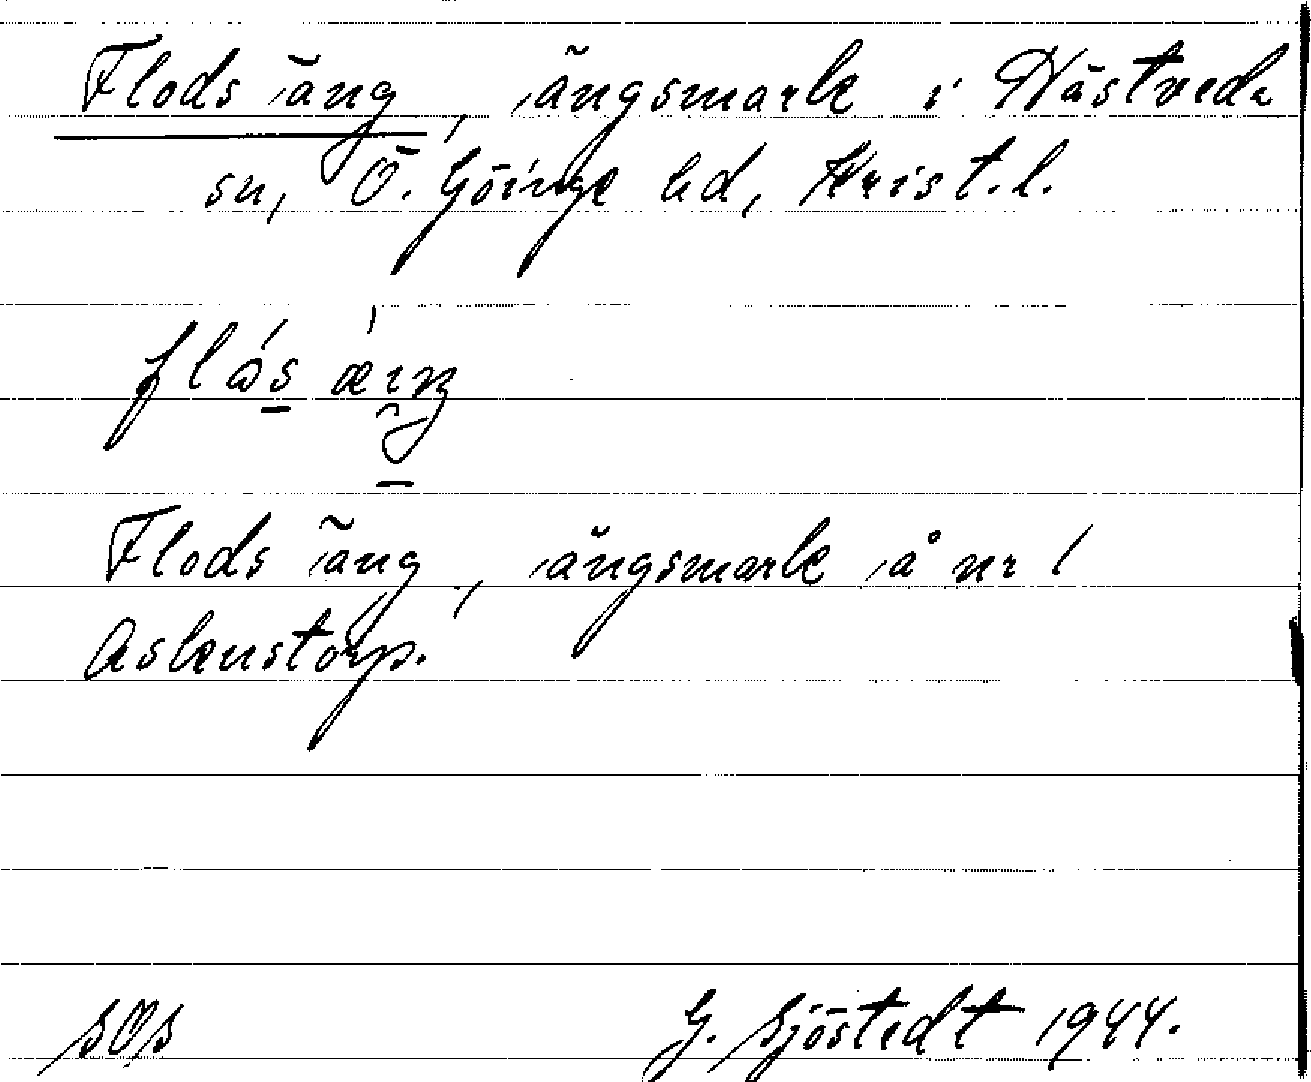 Flods äng, ängsmark i Hästveda
sn, Ö. Göinge hd, Krist. l.
Flods äng, ängsmark å nr 1
Askenstorp.
SOS G. Sjöstedt 1944.